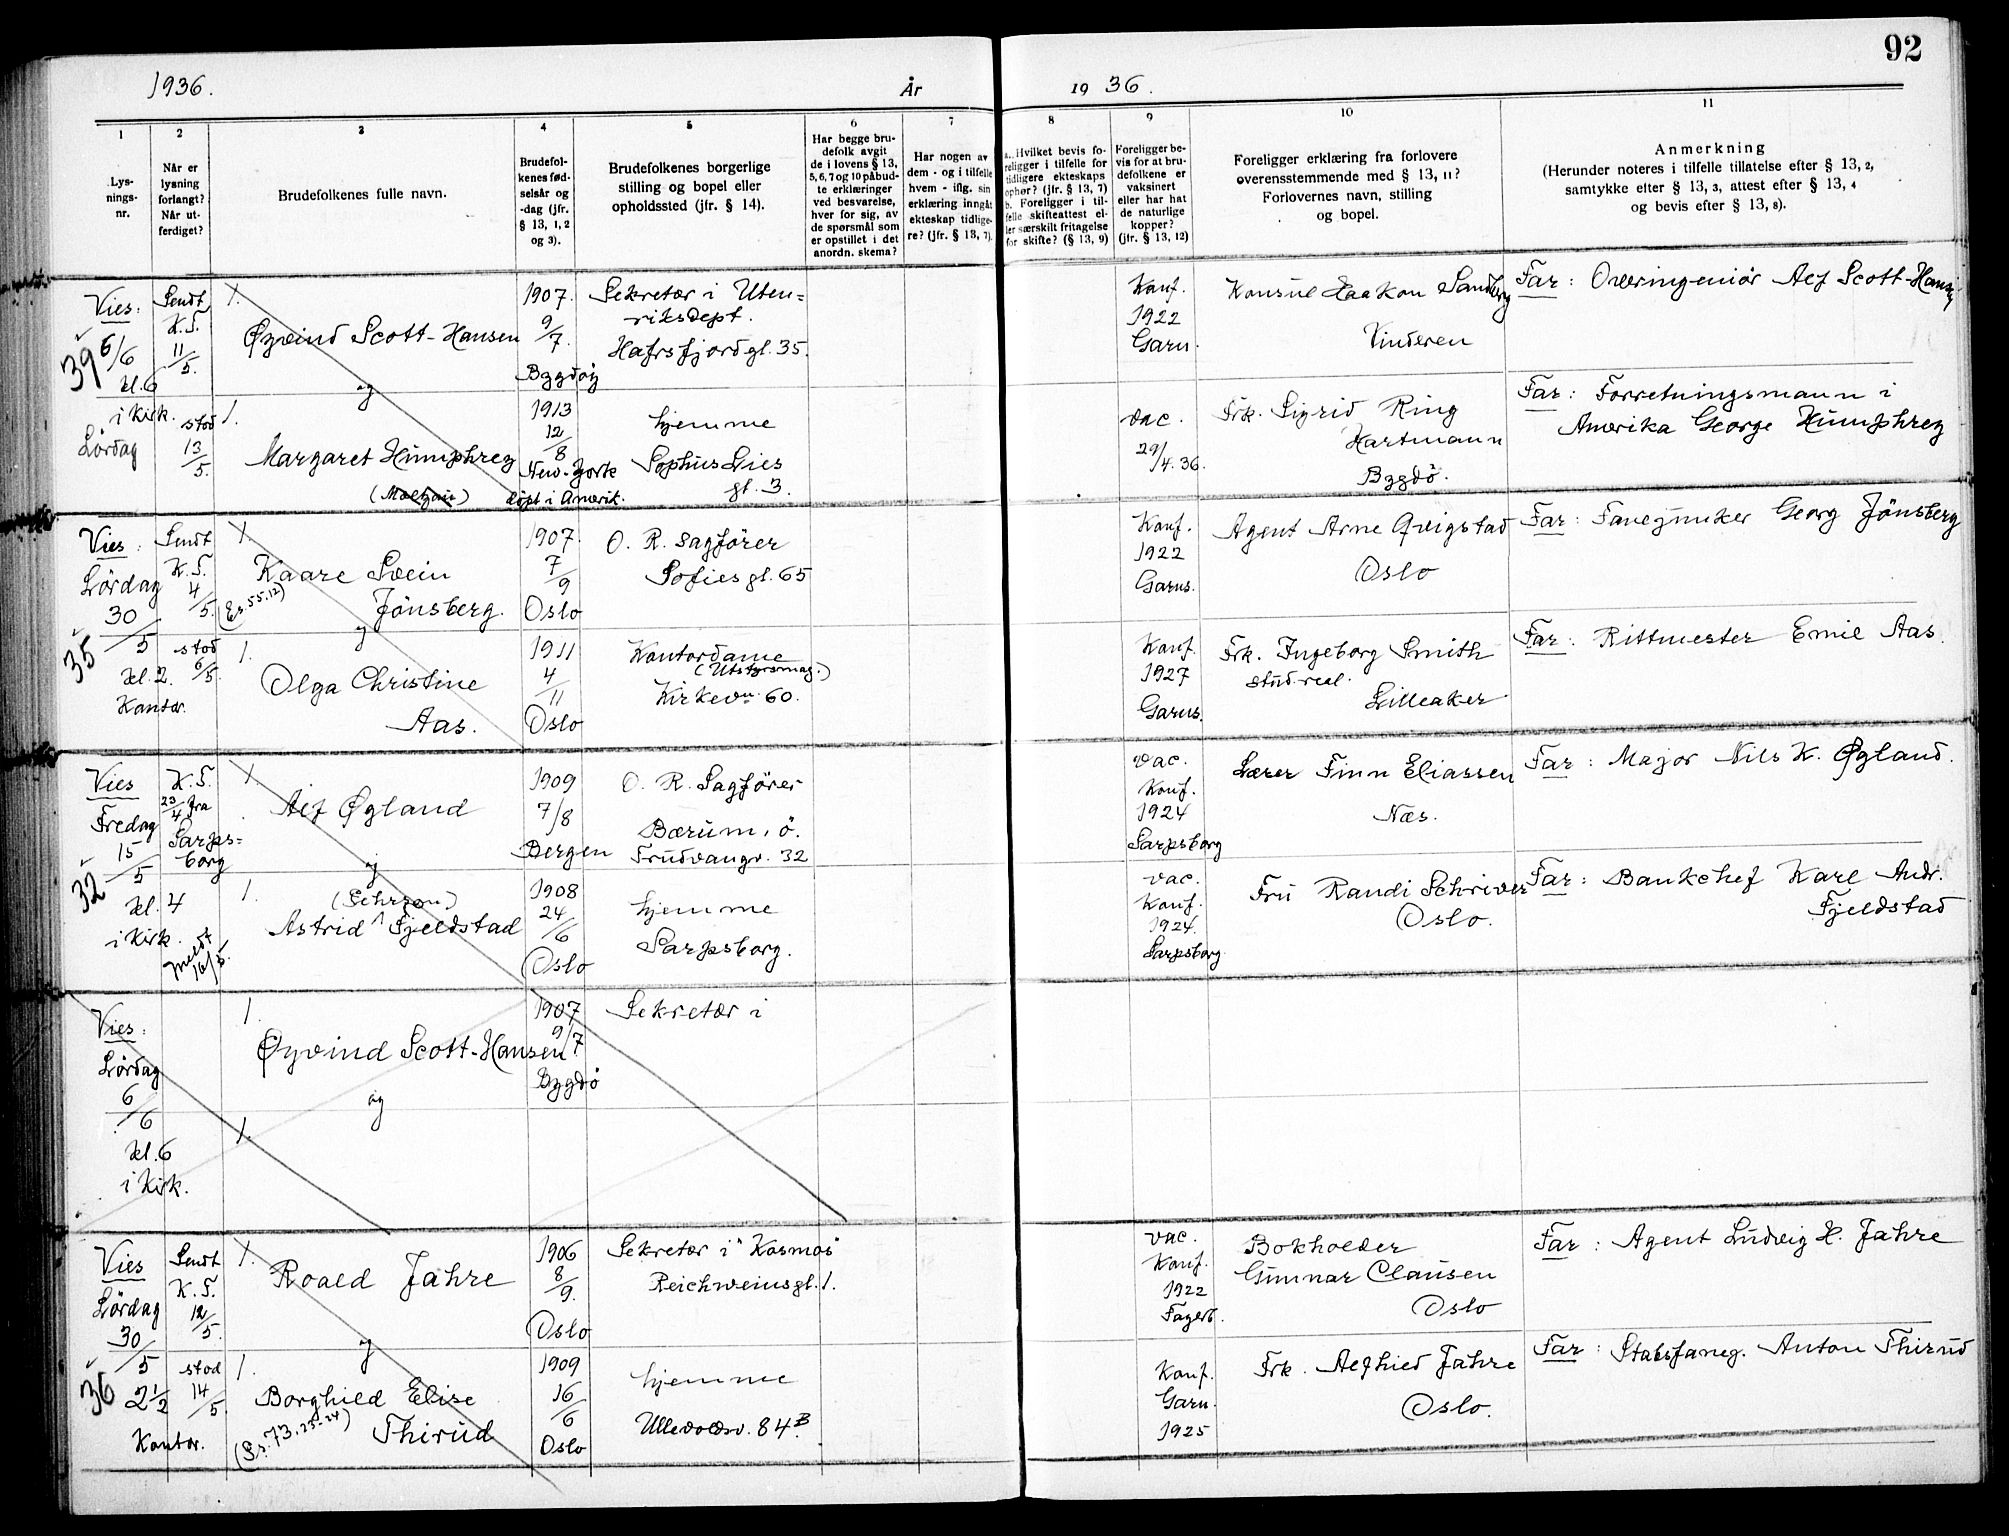 92
1936.
År
19 36.
1
Lys-
nings-
nr.
2
Når er
lysning
forlangt?
Når ut-
ferdiget?
3
Brudefolkenes fulle navn.
4
Brudefol-
kenes fød-
selsår og
-dag (jfr.
§ 13, 1, 2
og 3).
5
Brudefolkenes borgerlige
stilling og bopel eller
opholdssted (jfr. § 14).
6
Har begge bru-
defolk avgit
de i lovens § 13,
5, 6, 7 og 10 påbud-
te erklæringer
ved besvarelse,
hver for sig, av
de spørsmål som
er opstillet i det
anordn. skema?
7
Har nogen av
dem - og i tilfelle
hvem - iflg. sin
erklæring inngåt
ekteskap tidlige-
re? (jfr. § 13, 7).
8
a. Hvilket bevis fo-
religger i tilfelle for
tidligere ekteskaps
ophør? (jfr. § 13, 7)
b. Foreligger i til-
felle skifteattest el-
ler særskilt fritagelse
for skifte? (§ 13, 9)
9
Foreligger be-
vis for at bru-
defolkene er
vaksinert
eller har hat
de naturlige
kopper?
(jfr. § 13, 12)
10
Foreligger erklæring fra forlovere
overensstemmende med § 13, 11?
Forlovernes navn, stilling
og bopel.
11
Anmerkning
(Herunder noteres i tilfelle tillatelse efter § 13, 2,
samtykke efter § 13, 3, attest efter § 13, 4
og bevis efter § 13, 8).
39
Vies:
6/6
kl. 6
i Kirk.
Lördag
Sendt
K.T.
11/5.
stod
13/5.
1.
Øyvind Scott-Hansen
og
1.
Margaret Humphrey
1907.
9/7.
Bygdöy
1913
12/8
New-York
döpt i Amerik.
Sekretær i Uten=
riksdept.
Hafrsfjordgt. 35.
hjemme
Sophus Lies
gt. 3.
Konf.
1922
Garn.
vac.
29/4. 36.
Konsul Haakon Sandberg
Vinderen
Frk. Sigrid Ring
Hartmann
Bygdö.
Far: Overingeniör Alf Scott-Hansen
Far: Forretningsmann i
Amerika George Humphrey
35
Vies:
Lördag
30/5
kl. 2.
Kontor.
Sendt
K.T.
4/5.
stod
6/5.
1.
Kaare Svein
Jönsberg.
(Es. 55,12)
og
1.
Olga Christine
Aas.
1907.
7/9
Oslo
1911
4/11
Oslo
O. R. sagförer
Sofies gt. 65
Kontordame
(Utstyrsmag.)
Kirkevn. 60.
Konf.
1922
Garns.
Konf.
1927
Garns.
Agent Arne Qvigstad
Oslo
Frk. Ingeborg Smith
stud. real.
Lilleaker
Far: Fanejunker Georg Jönsberg
Far: Rittmester Emil Aas.
32
Vies
Fredag
15/5
kl. 4
i Kirk.
K.T.
23/4 fra
Sarps=
borg
Meldt
16/5.
1.
Alf Øgland
og
1.
Astrid Fjeldstad
1909
7/8
Bergen
1908
24/6
Oslo
O. R. Sagförer
Bærum, ö.
Frudvangv. 32
hjemme
Sarpsborg.
vac.
Konf.
1924
Sarpsborg
vac.
Konf.
1924.
Sarpsborg
Lærer Finn Eliassen
Næs.
Fru Randi Schriver
Oslo.
Far: Major Nils K. Øgland.
Far: Bankchef Karl Andr.
Fjeldstad
Vies:
Lördag
6/6
kl. 6
i Kirk.
1.
Øyvind Scott-Hansen
og
1.
1907
9/7
Bygdö
Sekretær i
36
Vies
Lördag
30/5
2 1/2
Kontor.
Sendt
K.T.
12/5.
stod
14/5.
1.
Roald Jahre
og
1.
Borghild Elise
Thirud
(Ps. 73, 23-24)
1906
8/9.
Oslo
1909
16/6
Oslo
Sekretær i "Kosmos"
Reichweinsgt. 1.
hjemme
Ullevoldsv. 84 B.
vac.
Konf.
1922
Fagerb.
Konf.
Garn.
1925
Bokholder
Gunnar Clausen
Oslo
Frk. Alfhild Jahre
Oslo.
Far: Agent Ludvig H. Jahre
Far: Stabsfanej. Anton Thirud